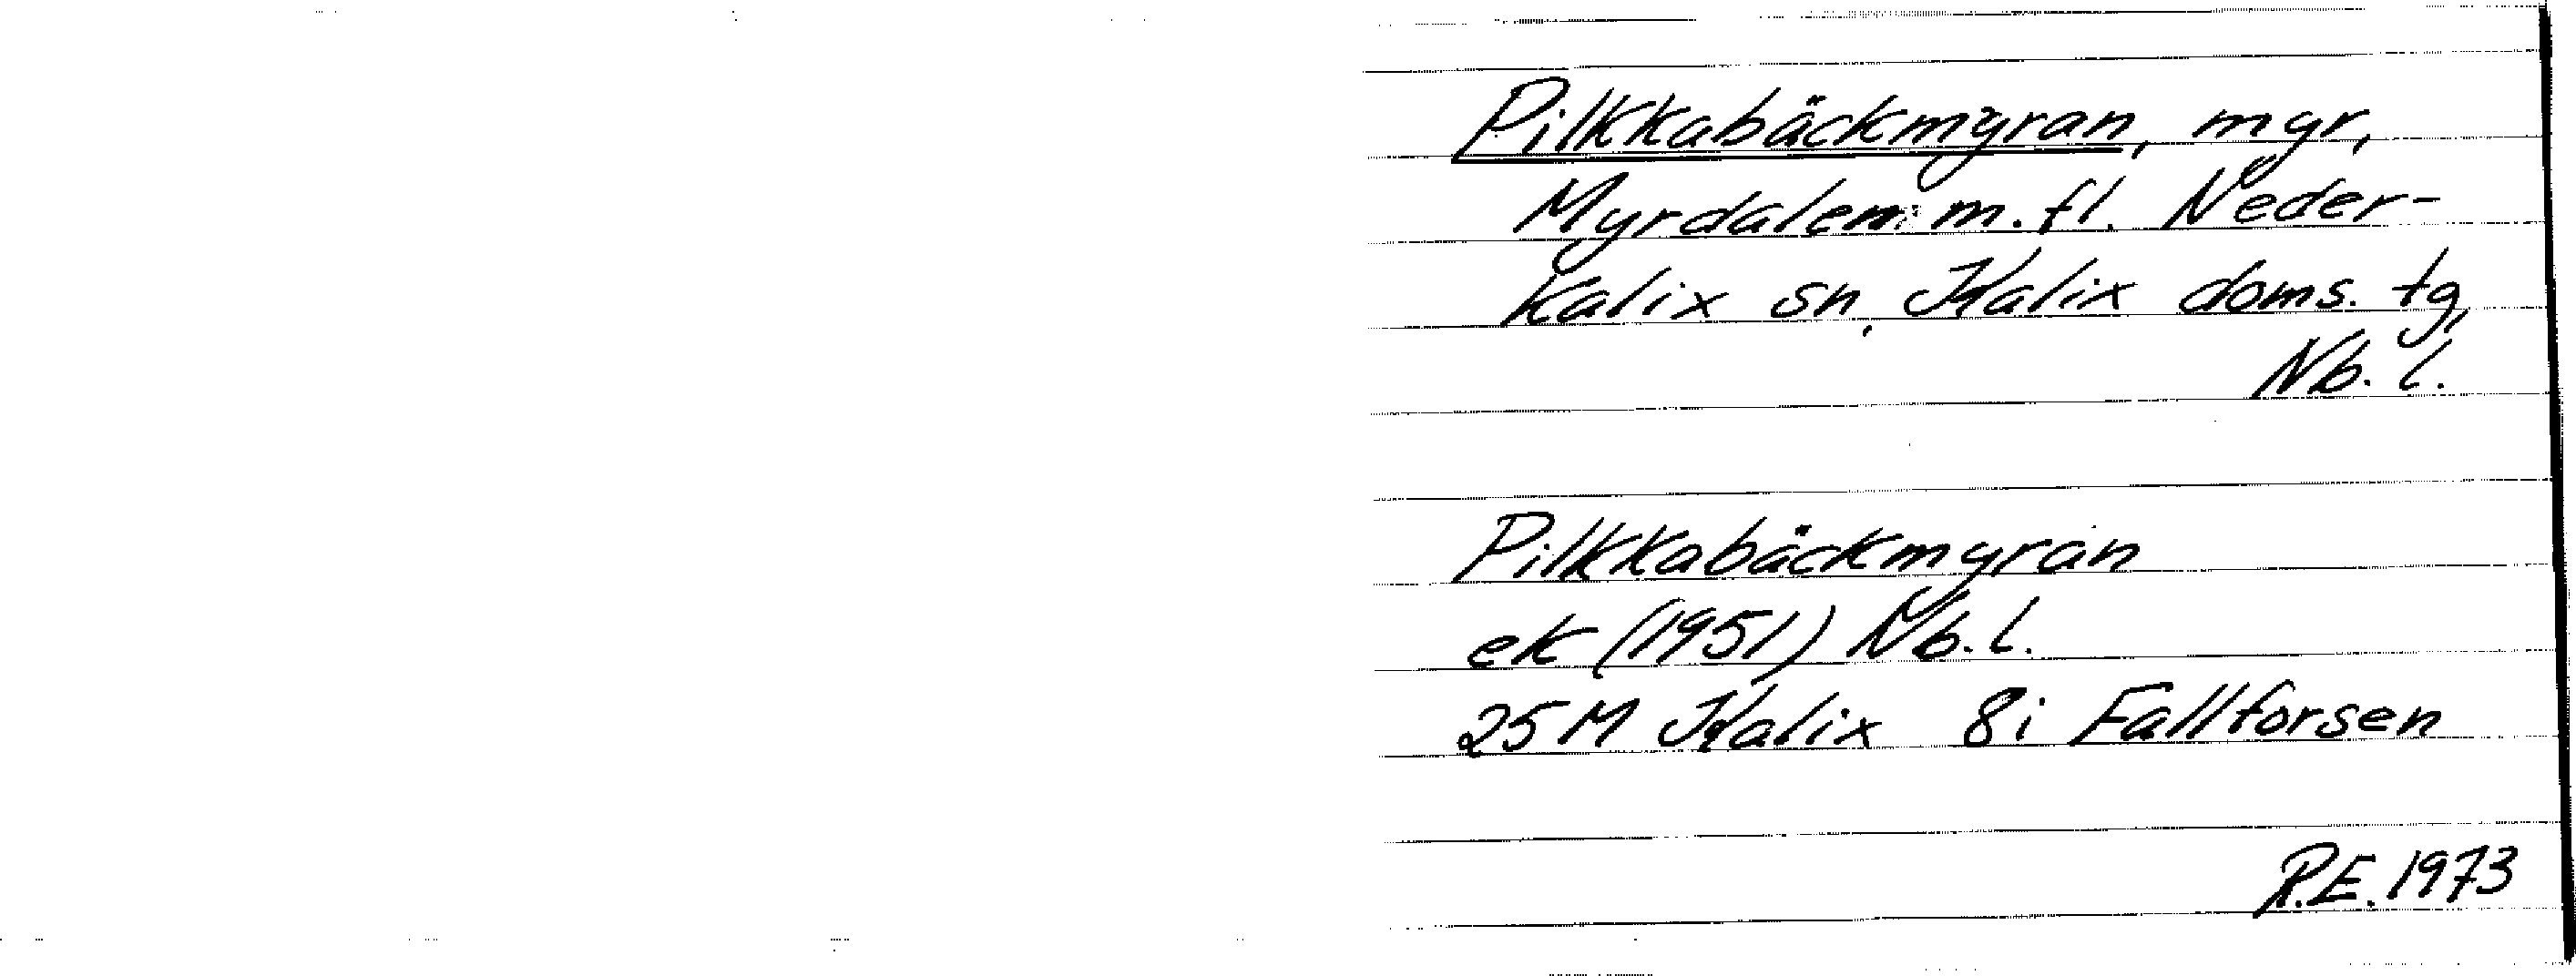 Pilkkabäckmyran, myr,
Myrdalen m.fl. Neder-
Kalix sn, Kalix doms. tg,
Nb. l.
Pilkkabäckmyran
ek (1951) Nb. l.
25 M Kalix 8i Fallforsen
R.E. 1973